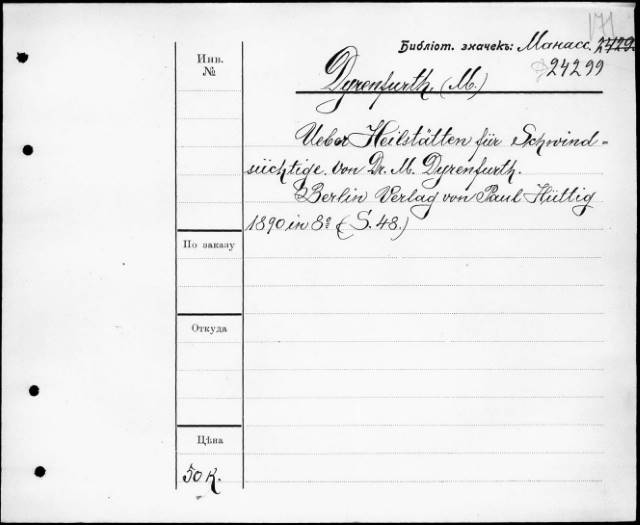 171
Библіот. значекъ: Манасс. 24299
24299
Инв. №
Dyrenfurth. (M.)
Ueber Heilstätten für Schwind-
süchtige. von Dr. M. Dyrenfurth.
Berlin Verlag von Paul Hüttig
1890 in 8º (S. 48.)
По заказу
Откуда
Цѣна
50 К.